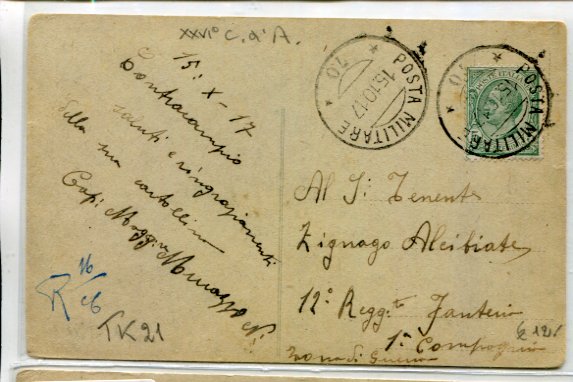 XXVI° C. d'A.
15. X - 17
Contracambio
saluti e ringraziamenti
della sua cartolina
Cap. Magg.
R 16/cb
TK21
POSTA MILITARE
* 70 *
15.10.17
POSTE ITALIANE
POSTA MILITARE
* 70 *
Al S: Tenente
Zignago Alcibiate
12° Regg.to Fanteria
1ª Compagnia
Zona di Guerra